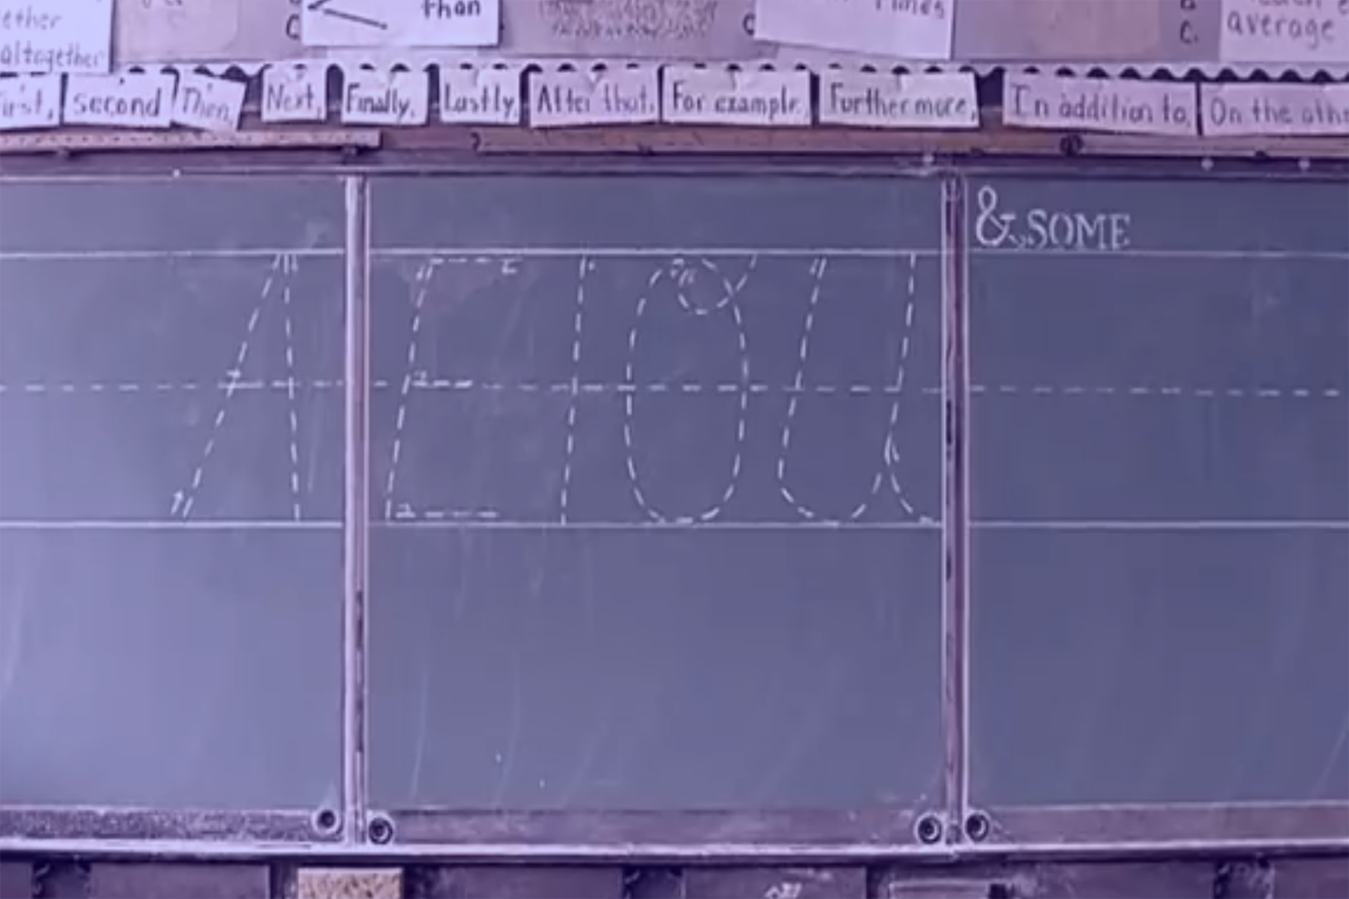 ether
altogether
than
C.
C.
average
First, second Then, Next, Finally, Lastly, After that, For example, Furthermore, In addition to, On the othe
& SOME
A E I O U